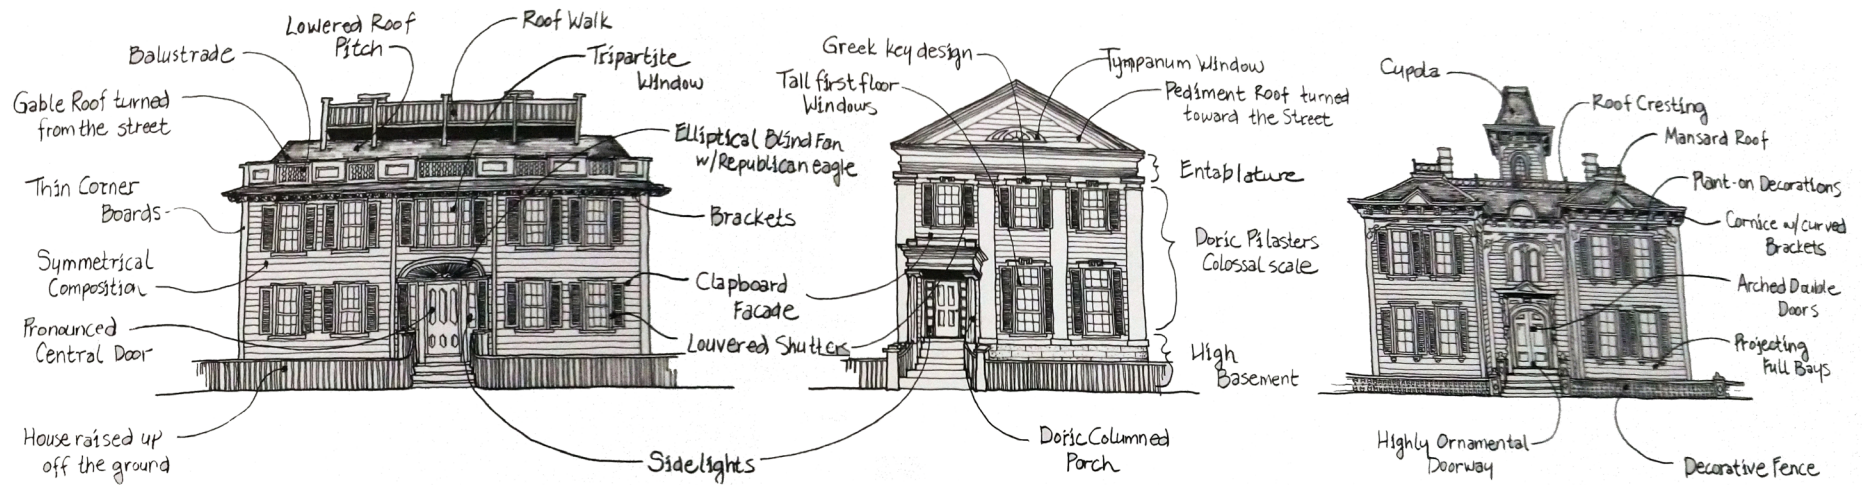 Lowered Roof
Pitch
Roof Walk
Balustrade
Tripartite
Window
Gable Roof turned
from the street
Elliptical Blind Fan
w/Republican eagle
Thin Corner
Boards
Brackets
Symmetrical
Composition
Clapboard
Facade
Pronounced
Central Door
Louvered Shutters
House raised up
off the ground
Sidelights
Greek key design
Tympanum Window
Tall first floor
Windows
Pediment Roof turned
toward the Street
Entablature
Doric Pilasters
Colossal scale
High
Basement
Doric Columned
Porch
Cupola
Roof Cresting
Mansard Roof
Plant-on Decorations
Cornice w/curved
Brackets
Arched Double
Doors
Projecting
Full Bays
Highly Ornamental
Doorway
Decorative Fence